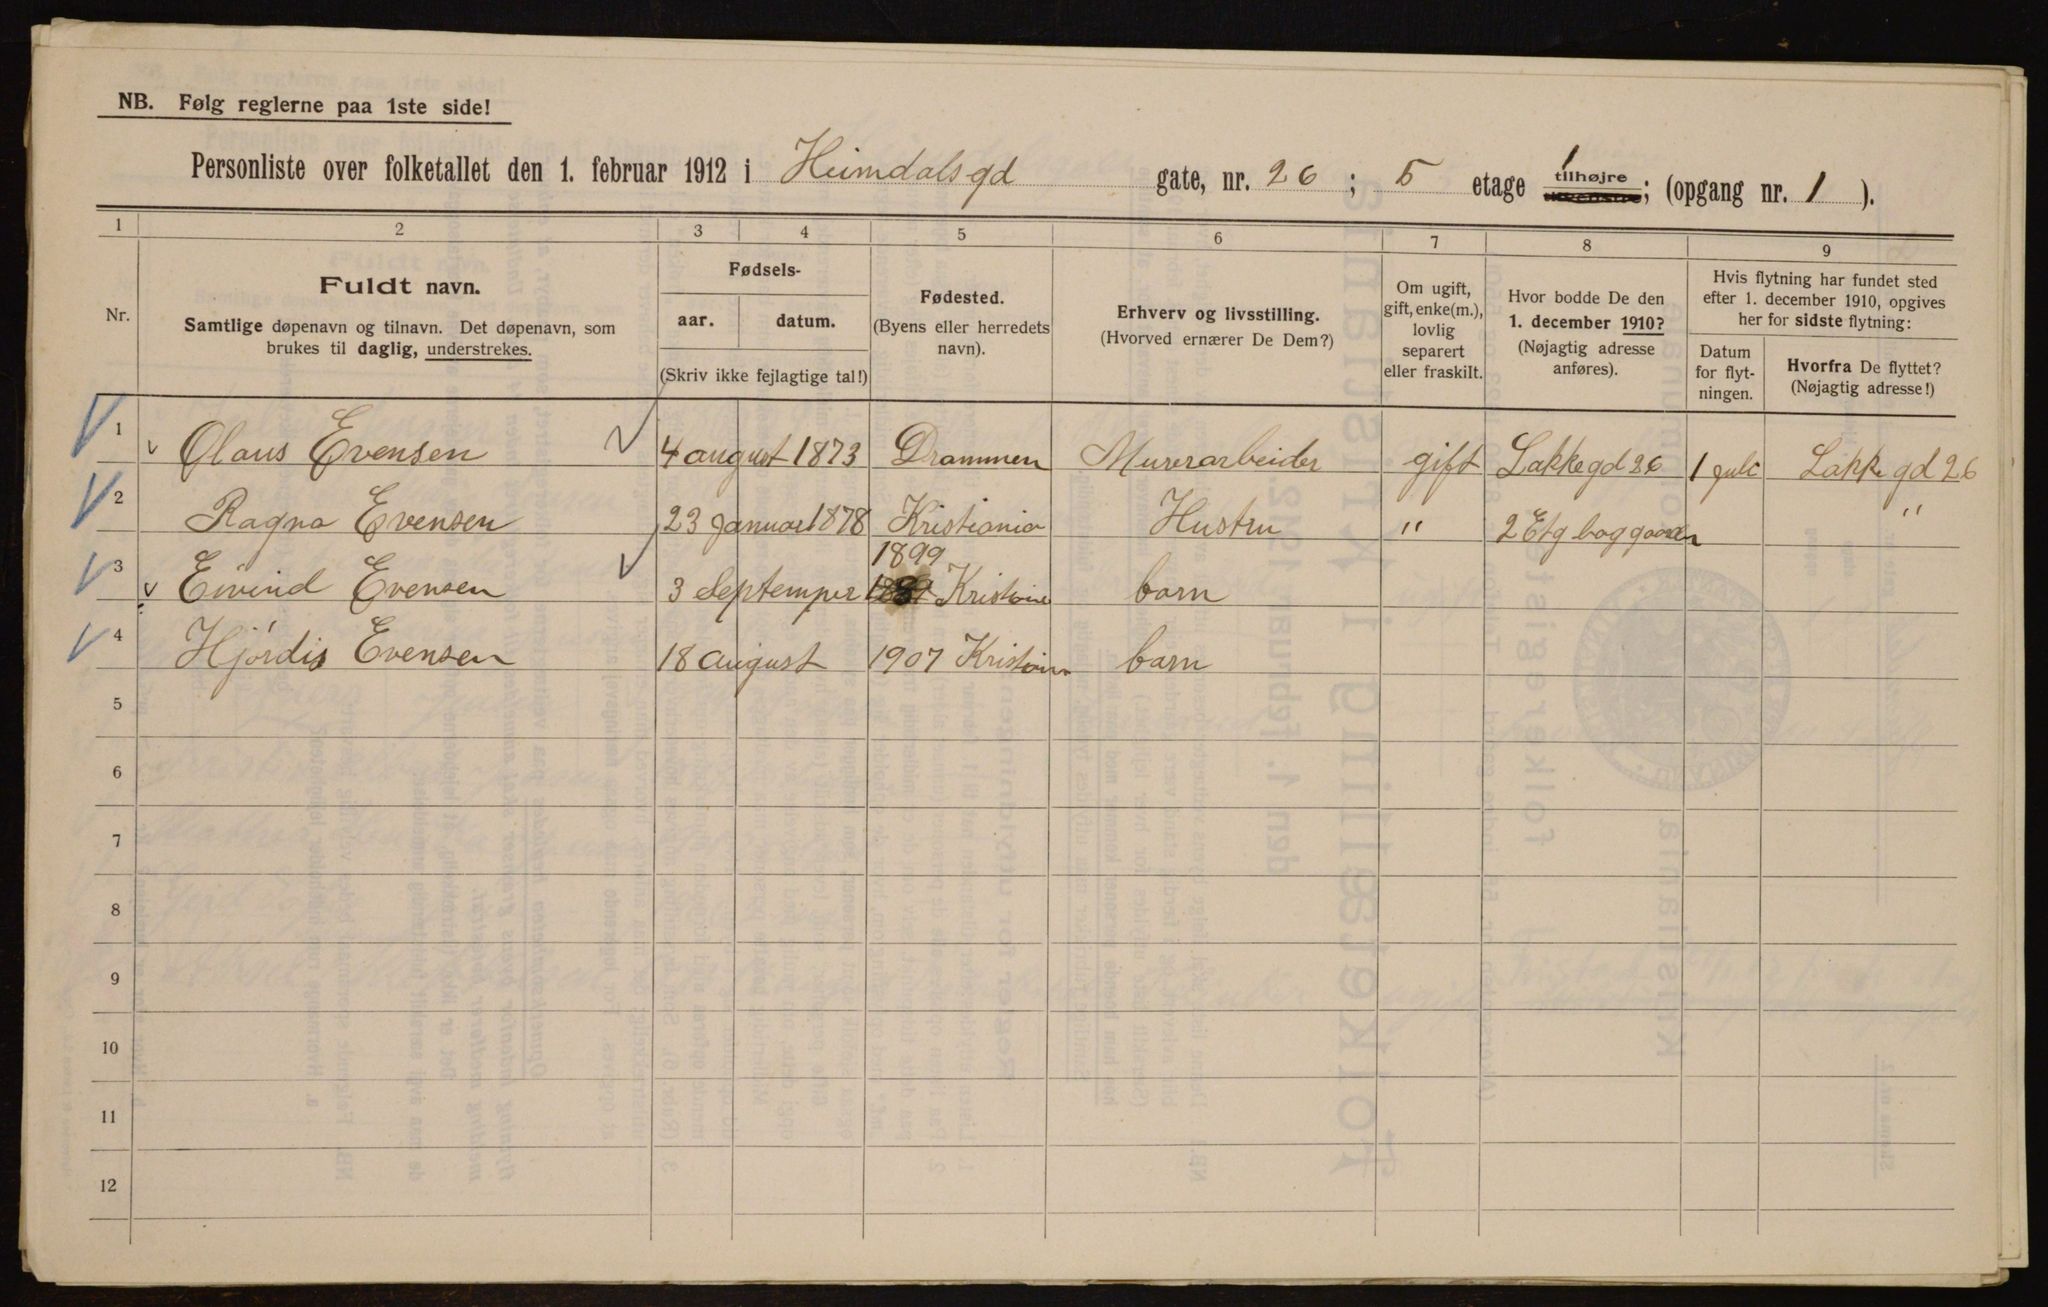 NB. Følg reglerne paa 1ste side!
Personliste over folketallet den 1. februar 1912 i Heimdalsgd gate, nr. 26 ; 5 etage 1 tilhøjre ; (opgang nr. 1 ).
1 2 3 4 5 6 7 8 9
Nr.
Fuldt navn.
Samtlige døpenavn og tilnavn. Det døpenavn, som
brukes til daglig, understrekes.
Fødsels-
aar. datum.
(Skriv ikke fejlagtige tal!)
Fødested.
(Byens eller herredets
navn).
Erhverv og livsstilling.
(Hvorved ernærer De Dem?)
Om ugift,
gift, enke(m.),
lovlig
separert
eller fraskilt.
Hvor bodde De den
1. december 1910?
(Nøjagtig adresse
anføres).
Hvis flytning har fundet sted
efter 1. december 1910, opgives
her for sidste flytning:
Datum
for flyt-
ningen.
Hvorfra De flyttet?
(Nøjagtig adresse!)
1 Olaus Evensen 4 august 1873 Drammen Murerarbeider gift Lakkegd 26 1 juli Lakkegd 26
2 Ragna Evensen 23 Januar 1878 Kristiania Hustru " 2 Etg baggaarden "
1899
3 Eivind Evensen 3 Septemper Kristiania barn
4 Hjórdis Evensen 18 august 1907 Kristiania barn
5
6
7
8
9
10
11
12